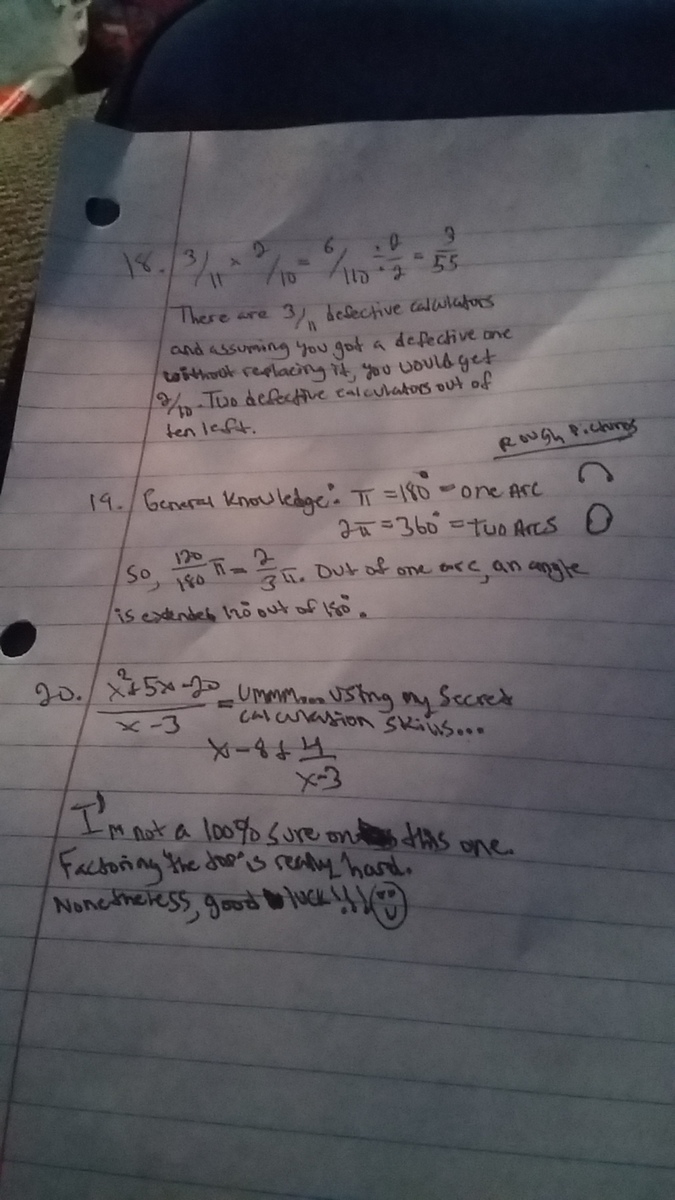 18. 3/11 × 2/10 = 6/110 ÷2/÷2 = 3/55
There are 3/11 defective calculators
and assuming you got a defective one
without replacing it, you would get
2/10. Two defective calculators out of
ten left.
Rough Pictures
19. General Knowledge: π = 180° = one Arc
2π = 360° = two Arcs
So, 120/180 π = 2/3 π. Out of one arc, an angle
is extended 120 out of 180°.
20. x²+5x-20/x-3 = Ummm... Using my Secret
calculation skills...
x-8+4/x-3
I'm not a 100% sure on this one.
Factoring the top is really hard.
Nonetheless, good luck!!!